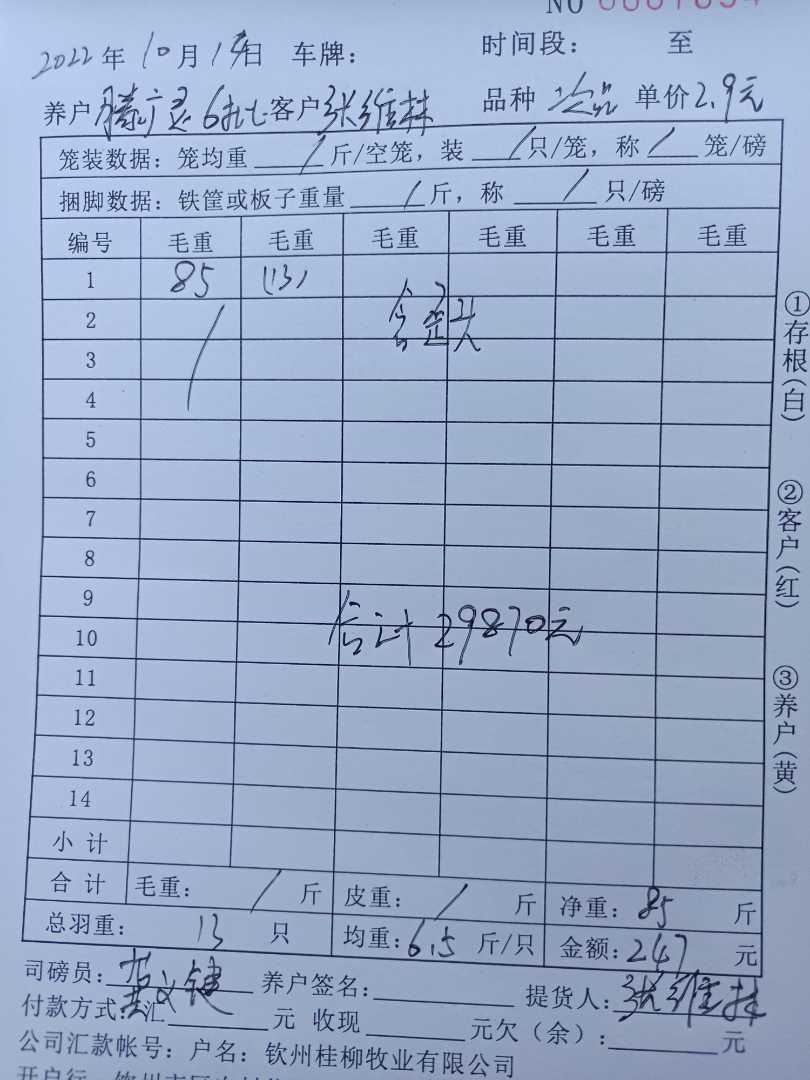 NO 0007894
2022年10月19日 车牌： 时间段： 至
养户 滕广灵 6批七 客户 张维林 品种 次品 单价2.9元
笼装数据：笼均重 / 斤/空笼，装 / 只/笼，称 / 笼/磅
捆脚数据：铁筐或板子重量 / 斤，称 / 只/磅
编号 毛重 毛重 毛重 毛重 毛重 毛重
1 85 (13)
2
3
4
5
6
7
8
9
合计 29870元
10
11
12
13
14
小计
合计 毛重： / 斤 皮重： / 斤 净重：85 斤
总羽重： 13 只 均重：6.5 斤/只 金额：247 元
司磅员： 养户签名： 提货人：张维林
付款方式：汇 元 收现 元欠（余）： 元
公司汇款帐号：户名：钦州桂柳牧业有限公司
①存根（白）
②客户（红）
③养户（黄）